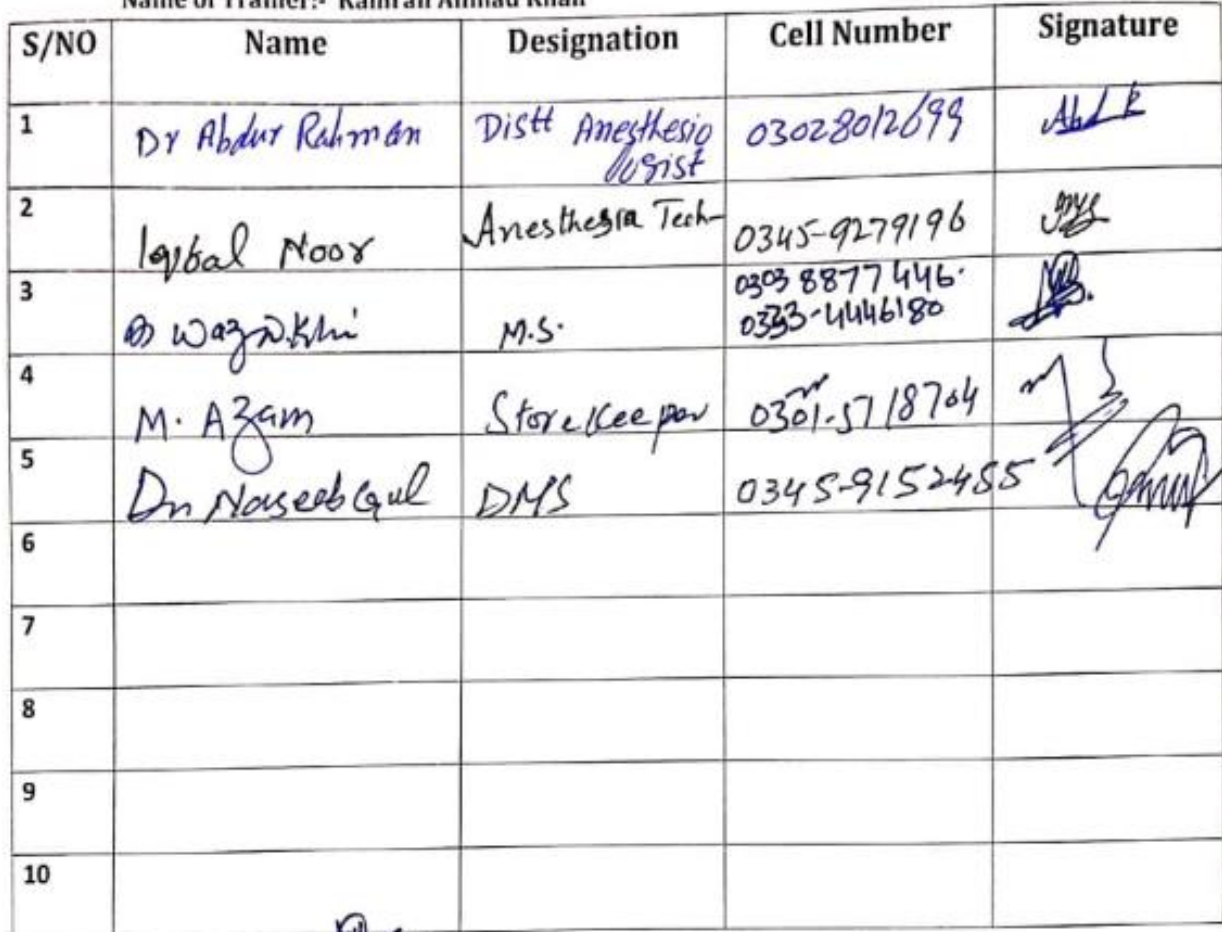 Name of Trainer:- Kamran Ahmad Khan
S/NO Name Designation Cell Number Signature
1 Dr Abdur Rahman Distt Anesthesio 03028012699
logist
2 Iqbal Noor Anesthesia Tech- 0345-9279196
0303 8877446.
3 M.S. 0333-4446180
4 M. Azam Storekeeper 0301-5718704
5 Dr Naseeb Gul DMS 0345-9152455
6
7
8
9
10